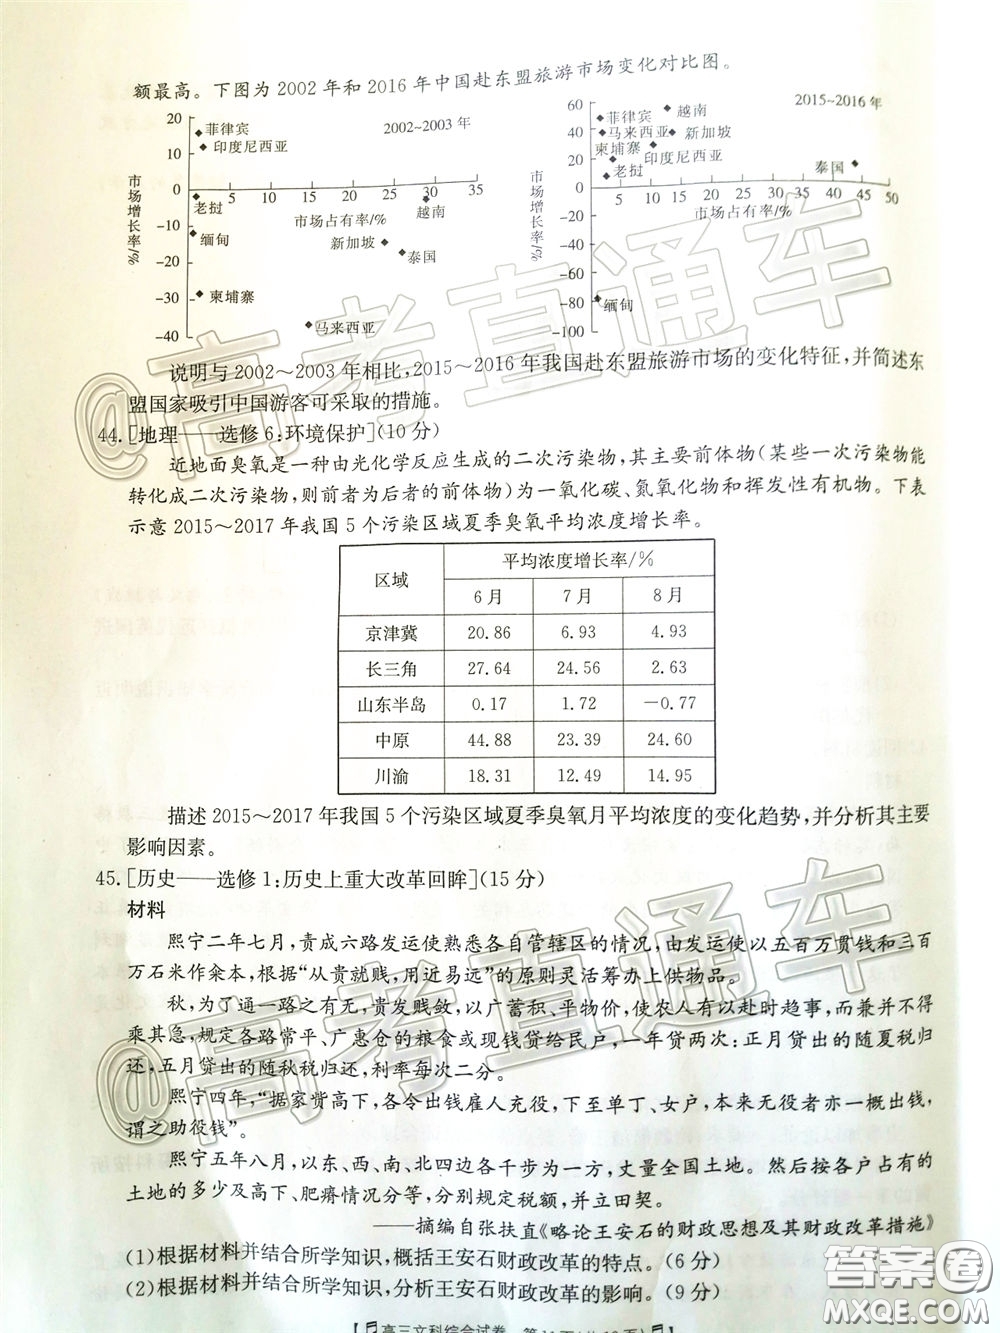 额最高。下图为2002年和2016年中国赴东盟旅游市场变化对比图。
2002~2003年
市场增长率/%
20
10
0
-10
-20
-30
-40
5 10 15 20 25 30 35
市场占有率/%
菲律宾
印度尼西亚
老挝
越南
缅甸
新加坡
泰国
柬埔寨
马来西亚
2015~2016年
市场增长率/%
60
40
20
0
-20
-40
-60
-80
-100
5 10 15 20 25 30 35 40 45 50
市场占有率/%
菲律宾
越南
马来西亚
新加坡
柬埔寨
印度尼西亚
老挝
泰国
缅甸
说明与2002～2003年相比,2015～2016年我国赴东盟旅游市场的变化特征,并简述东
盟国家吸引中国游客可采取的措施。
44.[地理——选修6:环境保护](10分)
近地面臭氧是一种由光化学反应生成的二次污染物,其主要前体物(某些一次污染物能
转化成二次污染物,则前者为后者的前体物)为一氧化碳、氮氧化物和挥发性有机物。下表
示意2015～2017年我国5个污染区域夏季臭氧平均浓度增长率。
区域 平均浓度增长率/%
6月 7月 8月
京津冀 20.86 6.93 4.93
长三角 27.64 24.56 2.63
山东半岛 0.17 1.72 -0.77
中原 44.88 23.39 24.60
川渝 18.31 12.49 14.95
描述2015～2017年我国5个污染区域夏季臭氧月平均浓度的变化趋势,并分析其主要
影响因素。
45.[历史——选修1:历史上重大改革回眸](15分)
材料
熙宁二年七月,责成六路发运使熟悉各自管辖区的情况,由发运使以五百万贯钱和三百
万石米作籴本,根据“从贵就贱,用近易远”的原则灵活筹办上供物品。
秋,为了通一路之有无,贵发贱敛,以广蓄积、平物价,使农人有以赴时趋事,而兼并不得
乘其急,规定各路常平、广惠仓的粮食或现钱贷给民户,一年贷两次:正月贷出的随夏税归
还,五月贷出的随秋税归还,利率每次二分。
熙宁四年,“据家赀高下,各令出钱雇人充役,下至单丁、女户,本来无役者亦一概出钱,
谓之助役钱”。
熙宁五年八月,以东、西、南、北四边各千步为一方,丈量全国土地。然后按各户占有的
土地的多少及高下、肥瘠情况分等,分别规定税额,并立田契。
——摘编自张扶直《略论王安石的财政思想及其财政改革措施》
(1)根据材料并结合所学知识,概括王安石财政改革的特点。(6分)
(2)根据材料并结合所学知识,分析王安石财政改革的影响。(9分)
高三文科综合试卷
@高考直通车
@高考直通车
答案卷
MXQE.COM